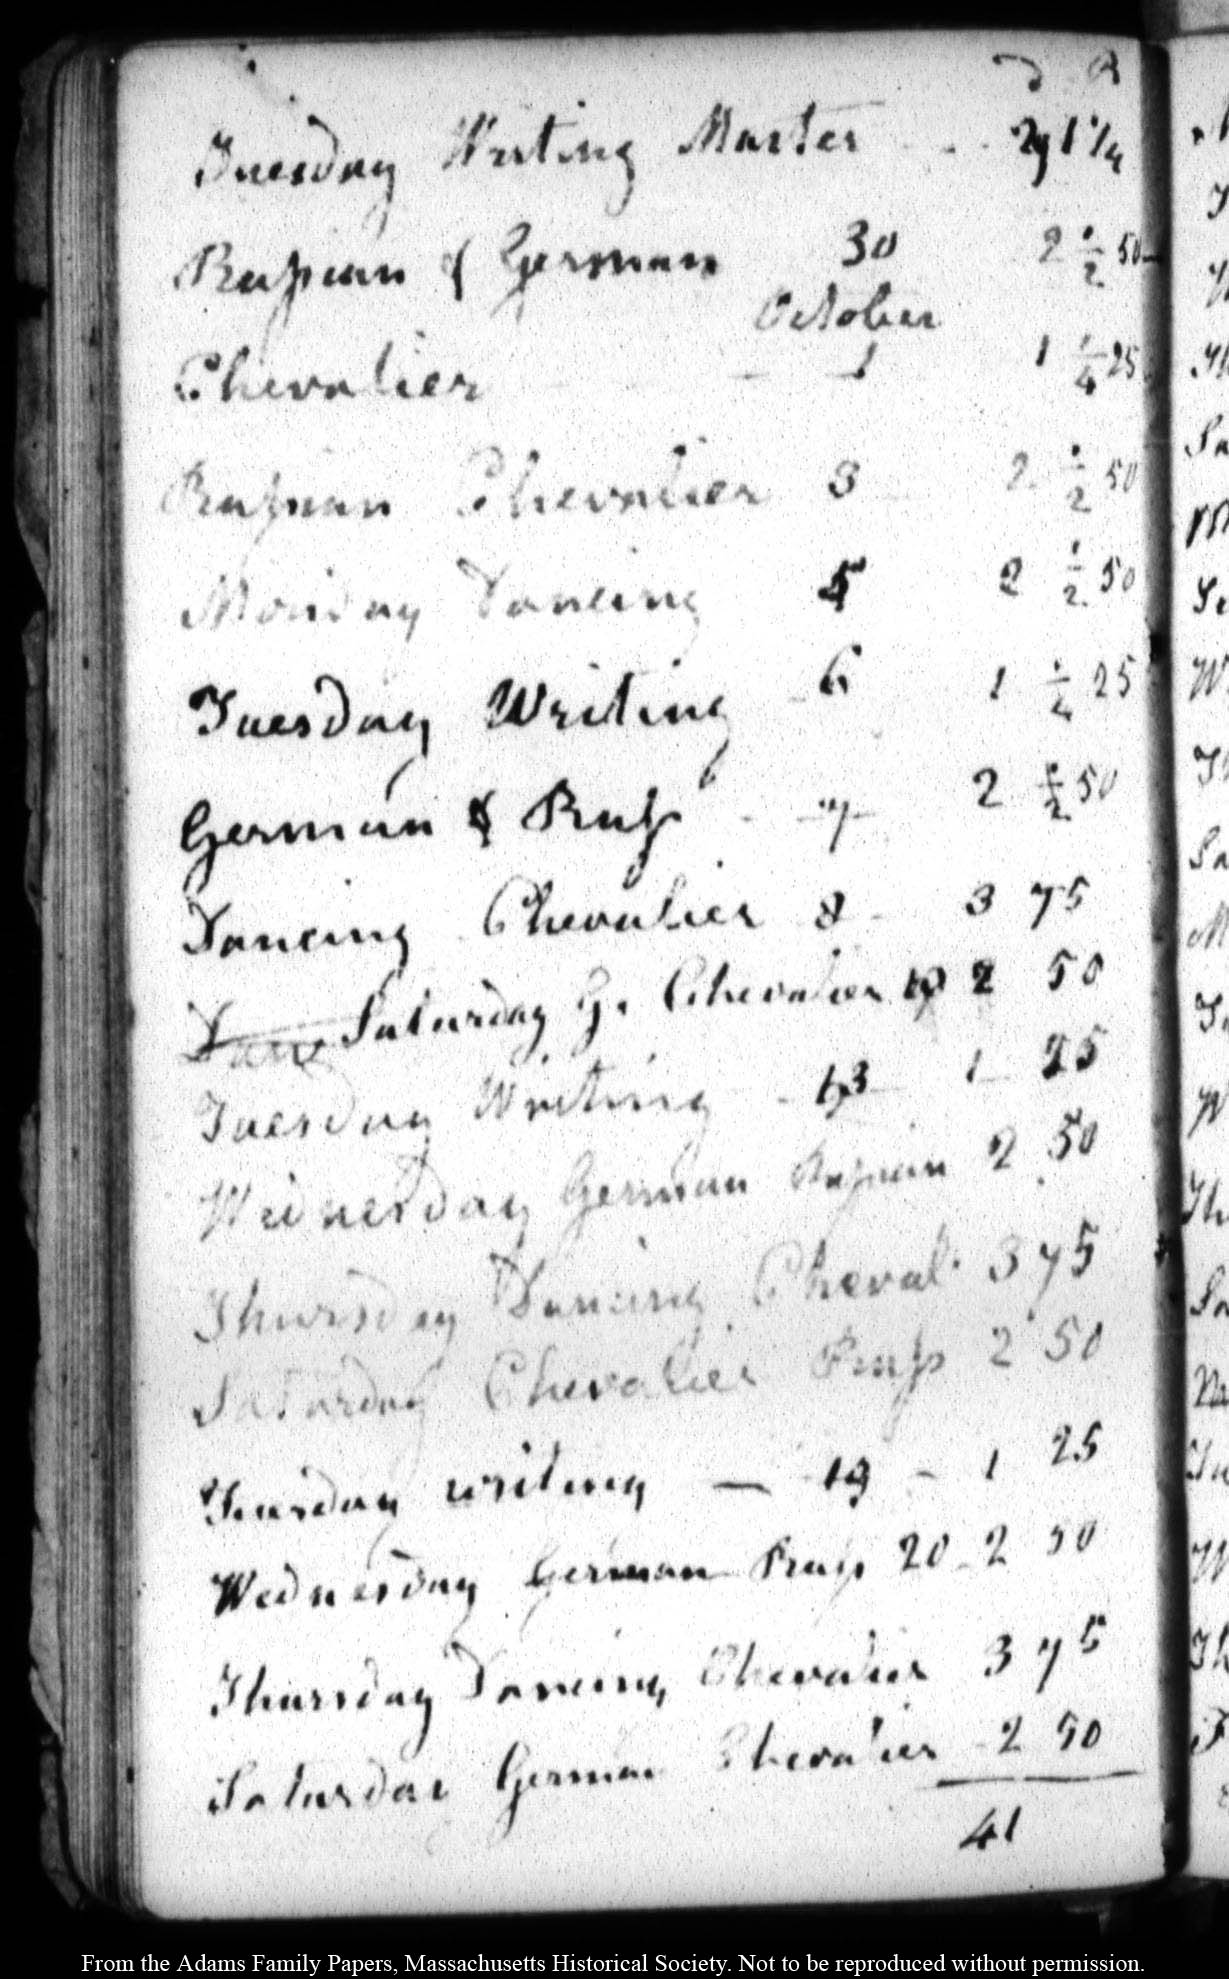 D R
Tuesday Writing Master - - - 29 1 1/4
Russian & German 30 2 1/2 50
October
Chevalier - 1 1 1/4 25
Russian Chevalier 3 2 1/2 50
Monday Dancing 5 2 1/2 50
Tuesday Writing - 6 1 1/4 25
German & Russ - 7 2 1/2 50
Dancing Chevalier 8 - 3 75
Saturday G. Chevalier 10 2 50
Tuesday Writing - 13 1 25
Wednesday German Russian 2 50
Thursday Dancing Cheval. 3 75
Saturday Chevalier Russ 2 50
Tuesday writing — 19 - 1 25
Wednesday German Russ 20 - 2 50
Thursday Dancing Chevalier 3 75
Saturday German Chevalier - 2 50
41
From the Adams Family Papers, Massachusetts Historical Society. Not to be reproduced without permission.